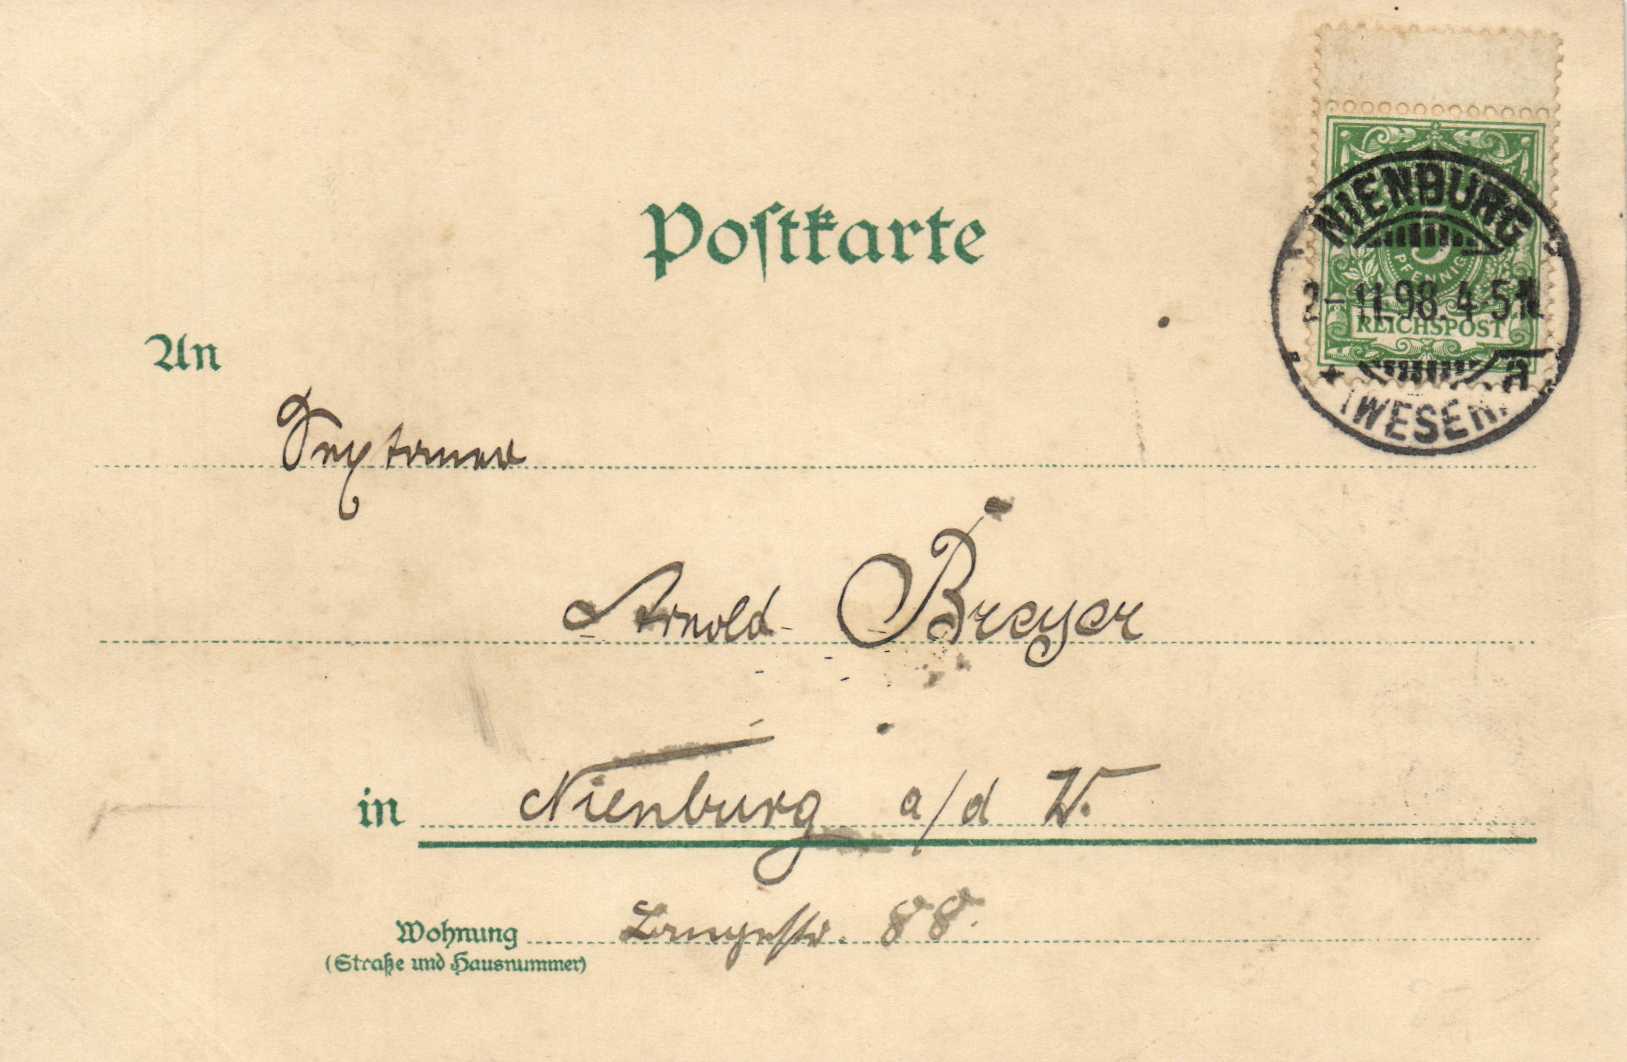 Postkarte
NIENBURG
5
PFENNIG
2-11.98. 4-5N
REICHSPOST
* a
(WESER)
An
Sextaner
Arnold Breyer
in Nienburg a/d W.
Wohnung Langestr. 88.
(Straße und Hausnummer)